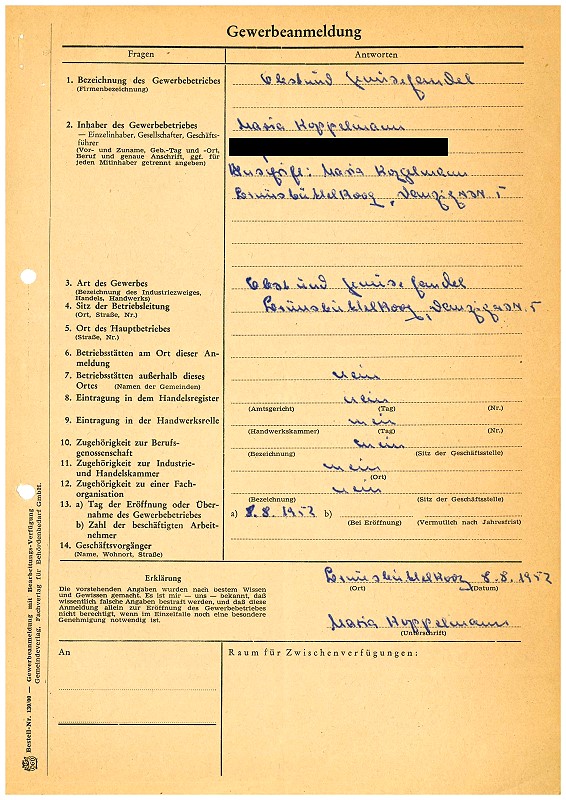 Gewerbeanmeldung
Fragen Antworten
1. Bezeichnung des Gewerbebetriebes Obst und Gemüsehandel
(Firmenbezeichnung)
2. Inhaber des Gewerbebetriebes Maria Koppelmann
— Einzelinhaber, Gesellschafter, Geschäfts-
führer
(Vor- und Zuname, Geb.-Tag und -Ort,
Beruf und genaue Anschrift, ggf. für
jeden Mitinhaber getrennt angeben)
Anschrift: Maria Koppelmann
Brunsbüttelkoog, Danzigerstr. 5
3. Art des Gewerbes Obst und Gemüsehandel
(Bezeichnung des Industriezweiges,
Handels, Handwerks)
4. Sitz der Betriebsleitung Brunsbüttelkoog, Danzigerstr. 5
(Ort, Straße, Nr.)
5. Ort des Hauptbetriebes
(Straße, Nr.)
6. Betriebsstätten am Ort dieser An-
meldung
7. Betriebsstätten außerhalb dieses nein
Ortes (Namen der Gemeinden)
8. Eintragung in dem Handelsregister nein
(Amtsgericht) (Tag) (Nr.)
9. Eintragung in der Handwerksrolle nein
(Handwerkskammer) (Tag) (Nr.)
10. Zugehörigkeit zur Berufs- nein
genossenschaft (Bezeichnung) (Sitz der Geschäftsstelle)
11. Zugehörigkeit zur Industrie- nein
und Handelskammer (Ort)
12. Zugehörigkeit zu einer Fach- nein
organisation (Bezeichnung) (Sitz der Geschäftsstelle)
13. a) Tag der Eröffnung oder Über- a) 8.8.1952 b)
nahme des Gewerbebetriebes
b) Zahl der beschäftigten Arbeit- (Bei Eröffnung) (Vermutlich nach Jahresfrist)
nehmer
14. Geschäftsvorgänger
(Name, Wohnort, Straße)
Erklärung
Die vorstehenden Angaben wurden nach bestem Wissen
und Gewissen gemacht. Es ist mir — uns — bekannt, daß
wissentlich falsche Angaben bestraft werden, und daß diese
Anmeldung allein zur Eröffnung des Gewerbebetriebes
nicht berechtigt, wenn im Einzelfalle noch eine besondere
Genehmigung notwendig ist.
Brunsbüttelkoog 8.8.1952
(Ort) (Datum)
Maria Koppelmann
(Unterschrift)
An
Raum für Zwischenverfügungen:
Bestell-Nr. 139/80 — Gewerbeanmeldung mit Bearbeitungs-Verfügung
Gemeindeverlag, Fachverlag für Behördenbedarf GmbH.